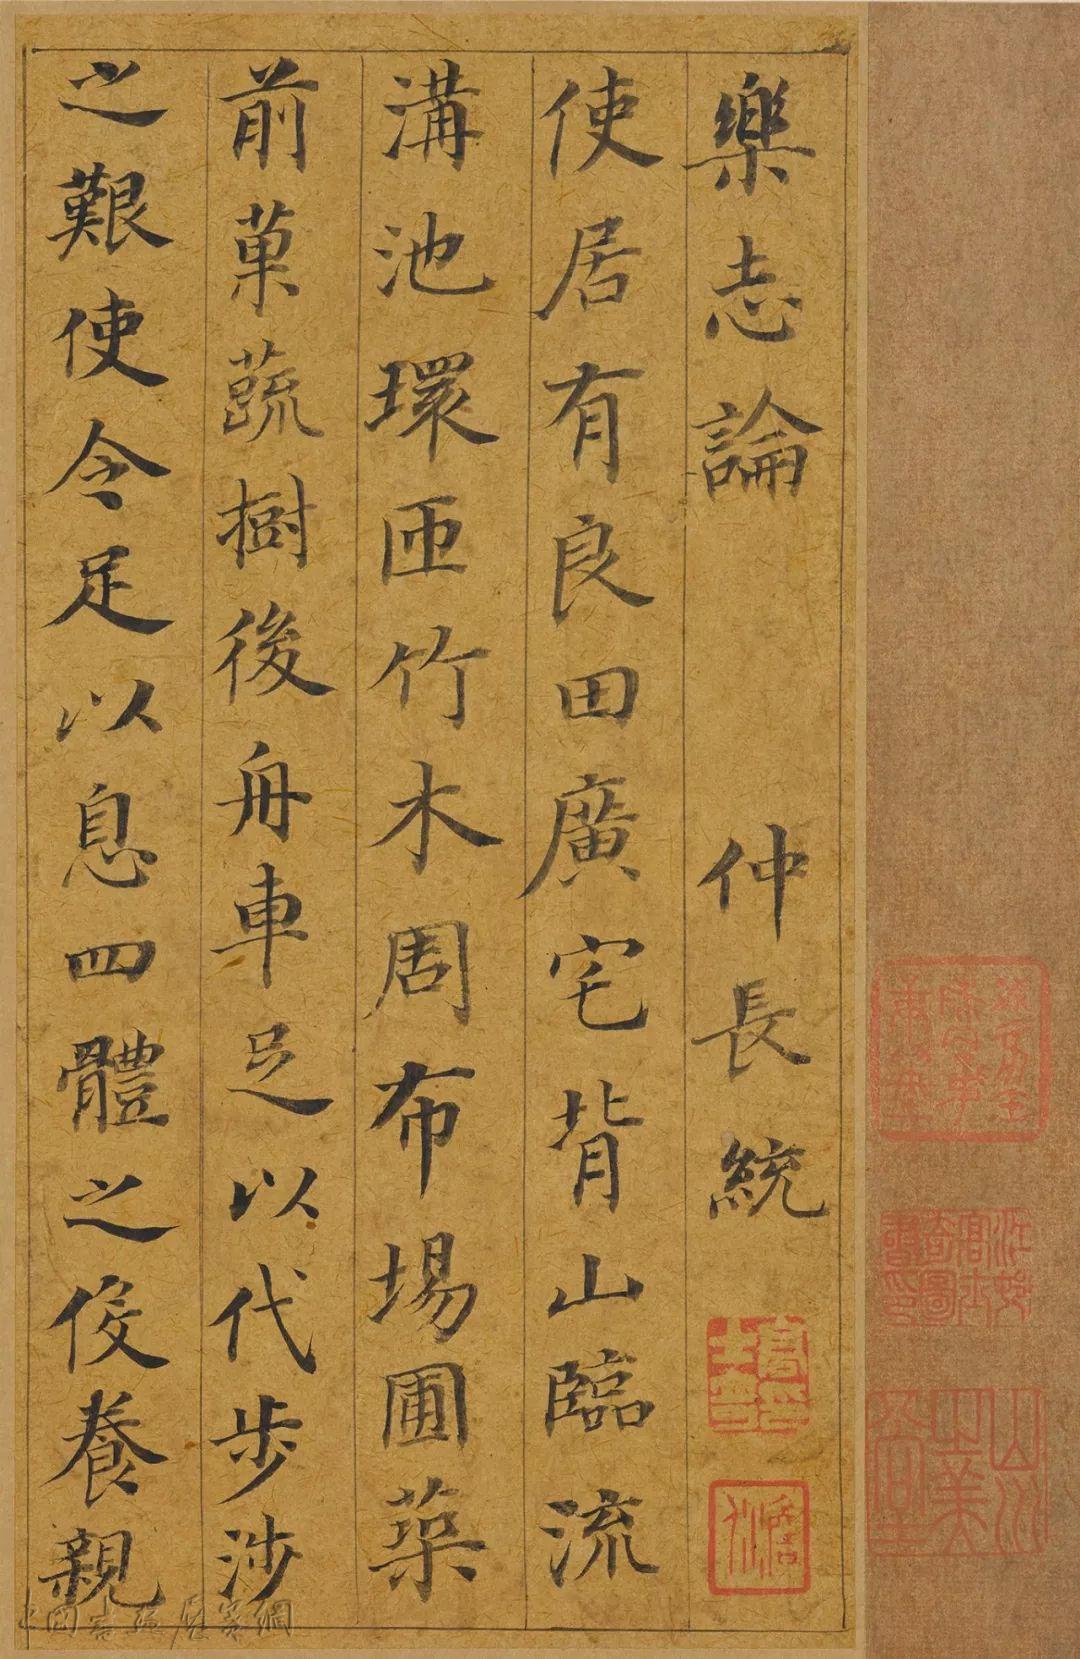 樂志論 仲長統
使居有良田廣宅背山臨流
溝池環匝竹木周布場圃築
前菓蔬樹後舟車足以代步涉
之艱使令足以息四體之役養親